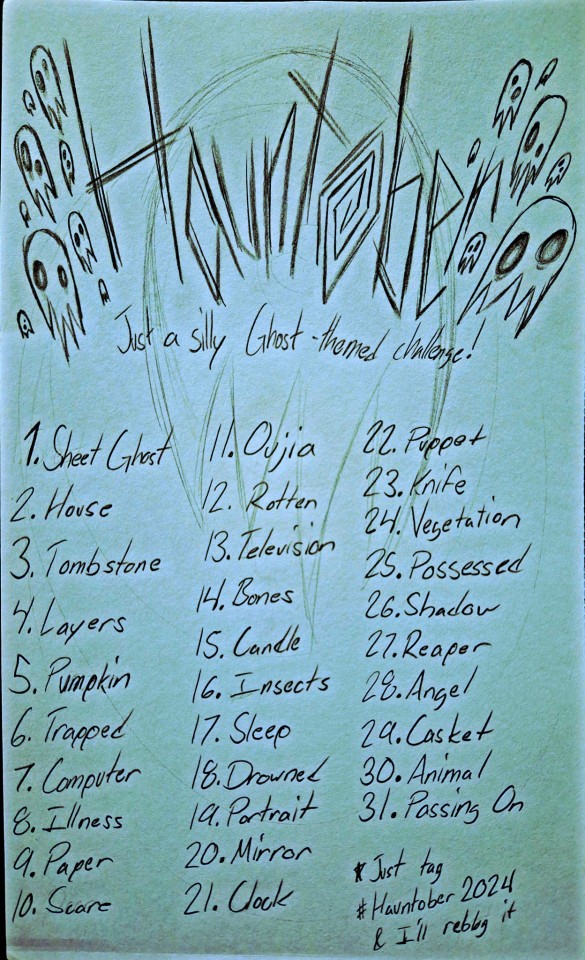 Hauntober
Just a silly Ghost-themed challenge!
1. Sheet Ghost
2. House
3. Tombstone
4. Layers
5. Pumpkin
6. Trapped
7. Computer
8. Illness
9. Paper
10. Scare
11. Oujia
12. Rotten
13. Television
14. Bones
15. Candle
16. Insects
17. Sleep
18. Drowned
19. Portrait
20. Mirror
21. Clock
22. Puppet
23. Knife
24. Vegetation
25. Possessed
26. Shadow
27. Reaper
28. Angel
29. Casket
30. Animal
31. Passing On
* Just tag
#Hauntober 2024
& I'll reblog it